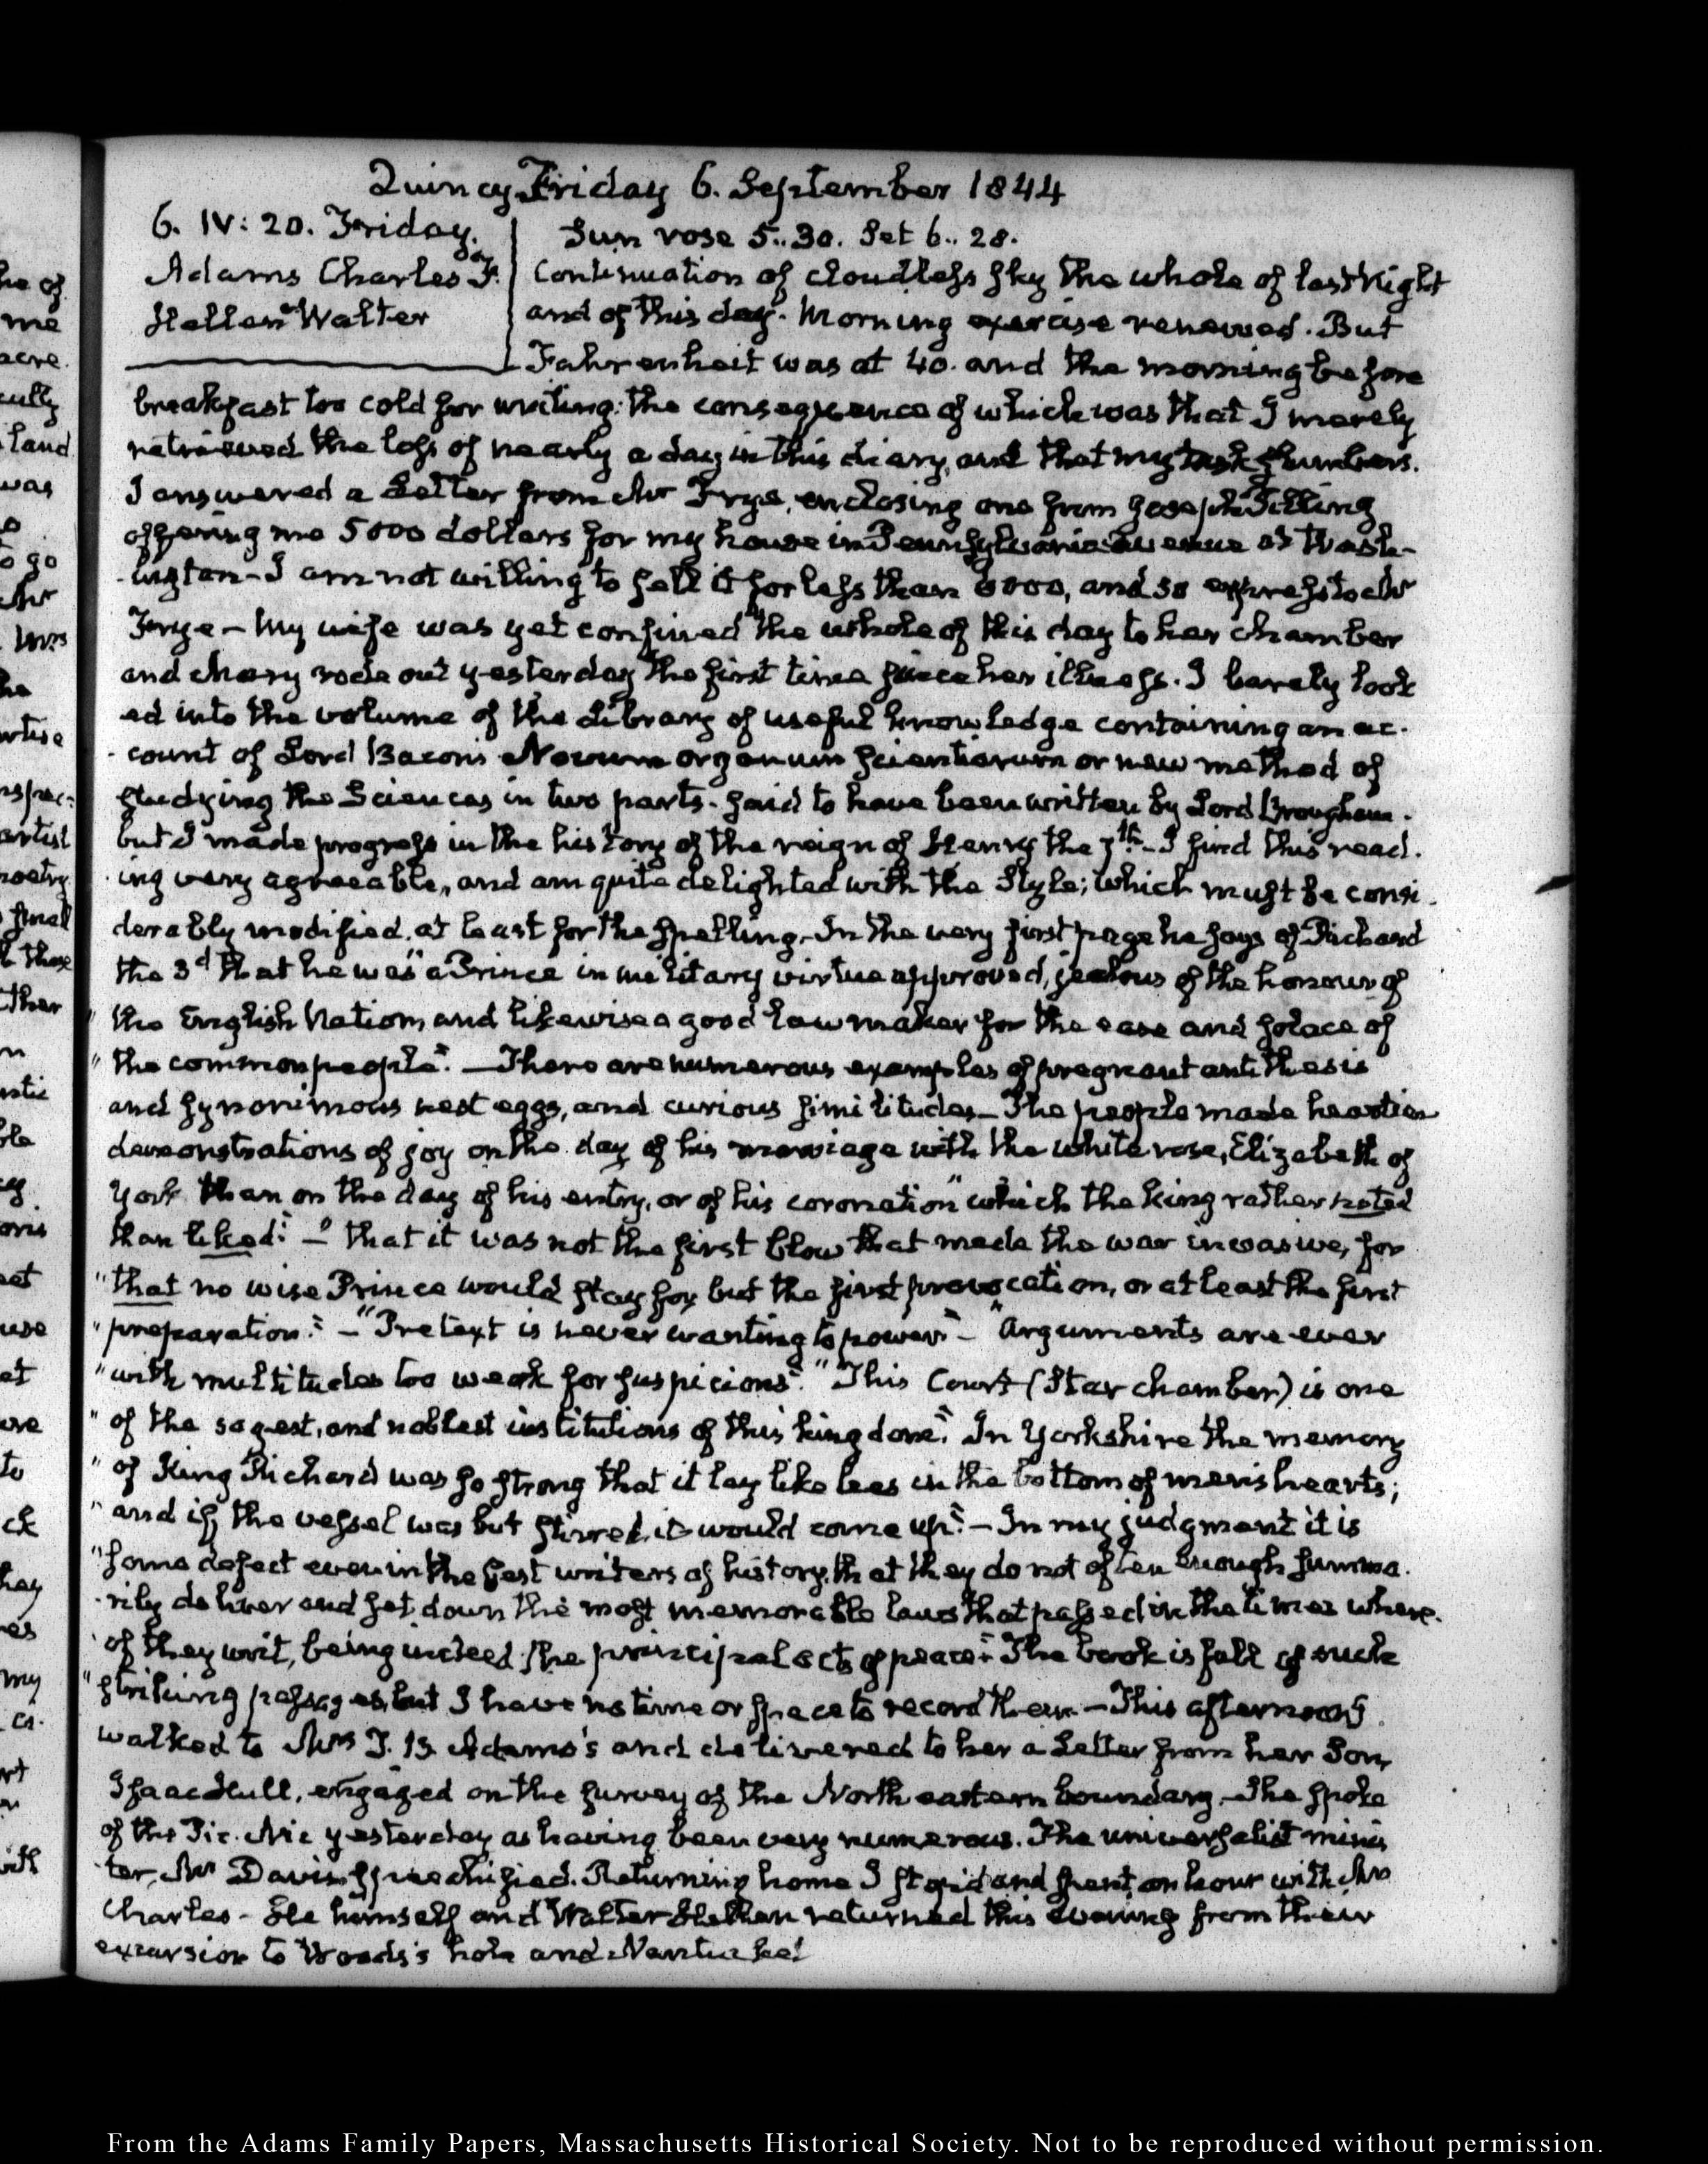 Quincy Friday 6. September 1844
6. IV: 20. Friday.
Adams Charles F.
Hellen Walter
Sun rose 5..30. Set 6..28.
Continuation of cloudless sky the whole of last Night
and of this day. Morning exercise renewed. But
Fahrenheit was at 40. and the morning before
breakfast too cold for writing: the consequence of which was that I merely
retrieved the loss of nearly a day in this diary, and that my task slumbers.
I answered a Letter from Mr Frye, enclosing one from Joseph
offering me 5000 dollars for my house in Pennsylvania Avenue at Wash-
-ington - I am not willing to sell it for less than 6000, and so express to Mr
Frye - My wife was yet confined the whole of this day to her chamber
and Mary rode out yesterday the first time since her illness. I barely look
ed into the volume of the Library of useful knowledge containing an ac-
-count of Lord Bacon's Novum organum Scientiarum or new method of
studying the Sciences in two parts. said to have been written by Lord Brougham.
but I made progress in the history of the reign of Henry the 7th - I find this read-
-ing very agreeable, and am quite delighted with the Style; which must be consi-
derably modified, at least for the spelling. In the very first page he says of Richard
the 3d that he was "a Prince in military virtue approved, jealous of the honour of
" the English Nation, and likewise a good law maker for the ease and solace of
" the common people." - There are numerous examples of pregnant antithesis
and synonimous nest eggs, and curious similitudes - The people made heartier
demonstrations of joy on the day of his marriage with the white rose, Elizabeth of
York than on the day of his entry, or of his coronation "which the king rather noted
than liked" - "that it was not the first blow that made the war invasive, for
"that no wise Prince would stay for but the first provocation, or at least the first
"preparation." - "Pretext is never wanting to power" - "Arguments are ever
"with multitudes too weak for suspicions." "This Court (Star chamber) is one
" of the sagest, and noblest institutions of this kingdom." In Yorkshire the memory
" of King Richard was so strong that it lay like lees in the bottom of men's hearts;
" and if the vessel was but stirred, it would come up." - In my judgment it is
"some defect even in the best writers of history, that they do not often enough summa-
-rily deliver and set down the most memorable laws that passed in the times where-
of they writ, being indeed the principal acts of peace" The book is full of such
"striking passages, but I have no time or space to record them - This afternoon I
walked to Mrs T. B. Adams's and delivered to her a Letter from her Son,
Isaac Hull, engaged on the survey of the North eastern boundary. She spoke
of the Pic. Nic yesterday as having been very numerous. The universalist minis
ter, Mr Davis, speechified. Returning home I stop'd and spent an hour with Mrs
Charles - He himself and Walter Hellen returned this evening from their
excursion to Woods's hole and Nantucket
From the Adams Family Papers, Massachusetts Historical Society. Not to be reproduced without permission.